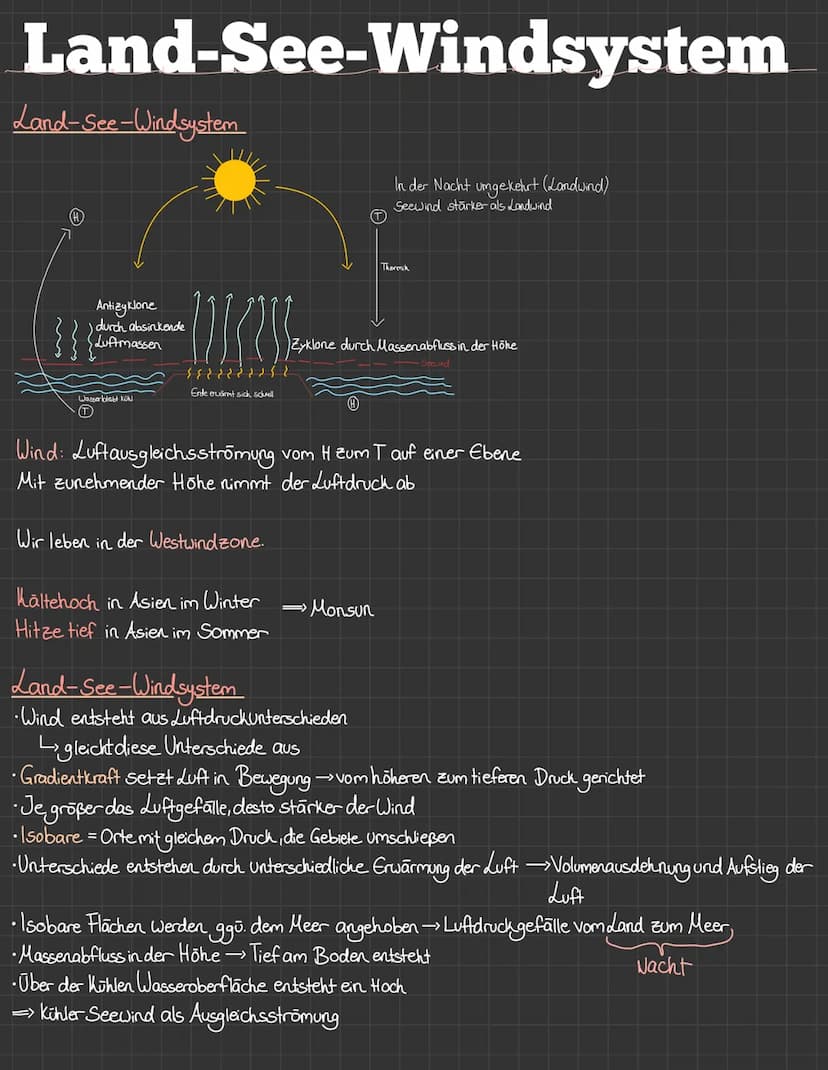 Land-See-Windsystem
Land-See-Windsystem
In der Nacht umgekehrt (Landwind)
Seewind stärker als Landwind
H
T
Thermik
Antizyklone
durch absinkende
Luftmassen
Zyklone durch Massenabfluss in der Höhe
Seewind
Wasser bleibt kühl
Erde erwärmt sich schnell
T
H
Wind: Luftausgleichsströmung vom H zum T auf einer Ebene
Mit zunehmender Höhe nimmt der Luftdruck ab
Wir leben in der Westwindzone.
Kältehoch in Asien im Winter ⟹ Monsun
Hitzetief in Asien im Sommer
Land-See-Windsystem
· Wind entsteht aus Luftdruckunterschieden
↳ gleicht diese Unterschiede aus
· Gradientkraft setzt Luft in Bewegung → vom höheren zum tieferen Druck gerichtet
· Je größer das Luftgefälle, desto stärker der Wind
· Isobare = Orte mit gleichem Druck, die Gebiete umschließen
· Unterschiede entstehen durch unterschiedliche Erwärmung der Luft → Volumenausdehnung und Aufstieg der
Luft
· Isobare Flächen werden ggü. dem Meer angehoben → Luftdruckgefälle vom Land zum Meer
· Massenabfluss in der Höhe → Tief am Boden entsteht
Nacht
· Über der kühlen Wasseroberfläche entsteht ein Hoch
⟹ kühler Seewind als Ausgleichsströmung